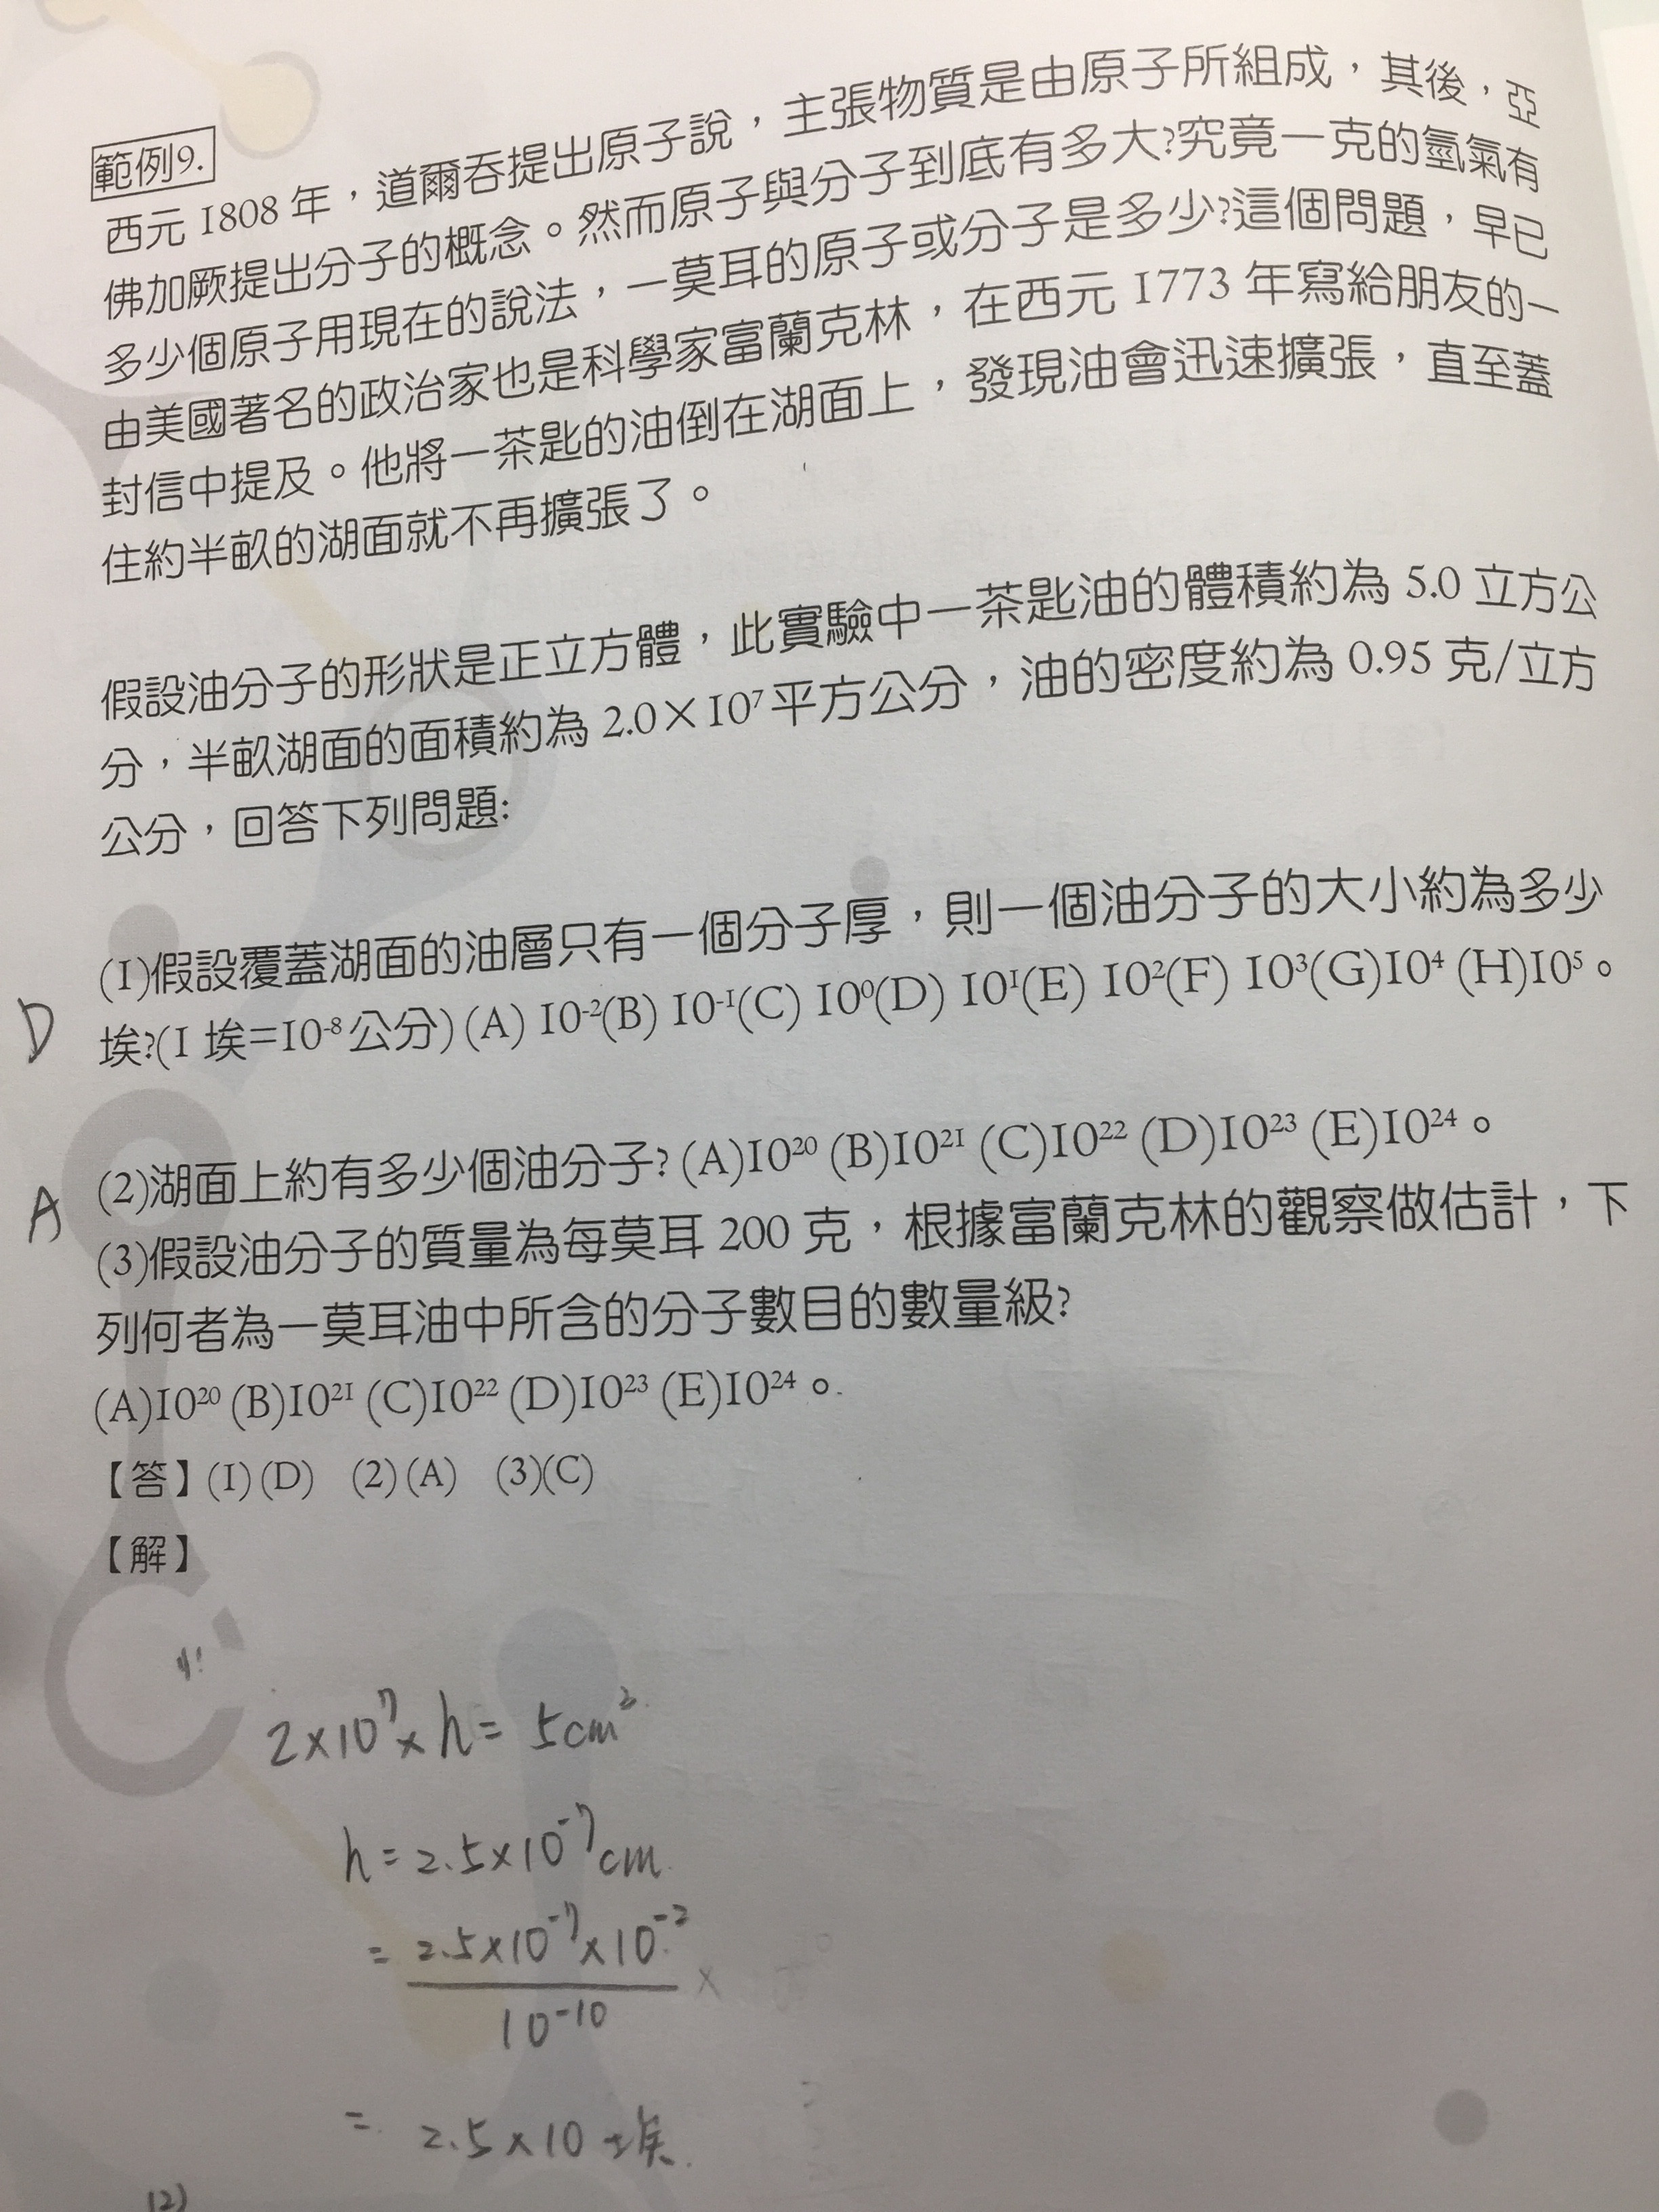 範例9.
西元 1808 年，道爾吞提出原子說，主張物質是由原子所組成，其後，亞
佛加厥提出分子的概念。然而原子與分子到底有多大?究竟一克的氫氣有
多少個原子用現在的說法，一莫耳的原子或分子是多少?這個問題，早已
由美國著名的政治家也是科學家富蘭克林，在西元 1773 年寫給朋友的一
封信中提及。他將一茶匙的油倒在湖面上，發現油會迅速擴張，直至蓋
住約半畝的湖面就不再擴張了。
假設油分子的形狀是正立方體，此實驗中一茶匙油的體積約為 5.0 立方公
分，半畝湖面的面積約為 2.0×10⁷平方公分，油的密度約為 0.95 克/立方
公分，回答下列問題:
(1)假設覆蓋湖面的油層只有一個分子厚，則一個油分子的大小約為多少
D 埃?(1 埃=10⁻⁸公分) (A) 10⁻²(B) 10⁻¹(C) 10⁰(D) 10¹(E) 10²(F) 10³(G)10⁴ (H)10⁵。
A (2)湖面上約有多少個油分子? (A)10²⁰ (B)10²¹ (C)10²² (D)10²³ (E)10²⁴。
(3)假設油分子的質量為每莫耳 200 克，根據富蘭克林的觀察做估計，下
列何者為一莫耳油中所含的分子數目的數量級?
(A)10²⁰ (B)10²¹ (C)10²² (D)10²³ (E)10²⁴。
【答】(1) (D) (2) (A) (3)(C)
【解】
2×10⁷×h = 5cm³
h = 2.5×10⁻⁷cm
= 2.5×10⁻⁷×10⁻²
10⁻¹⁰
= 2.5×10 埃.
(2)